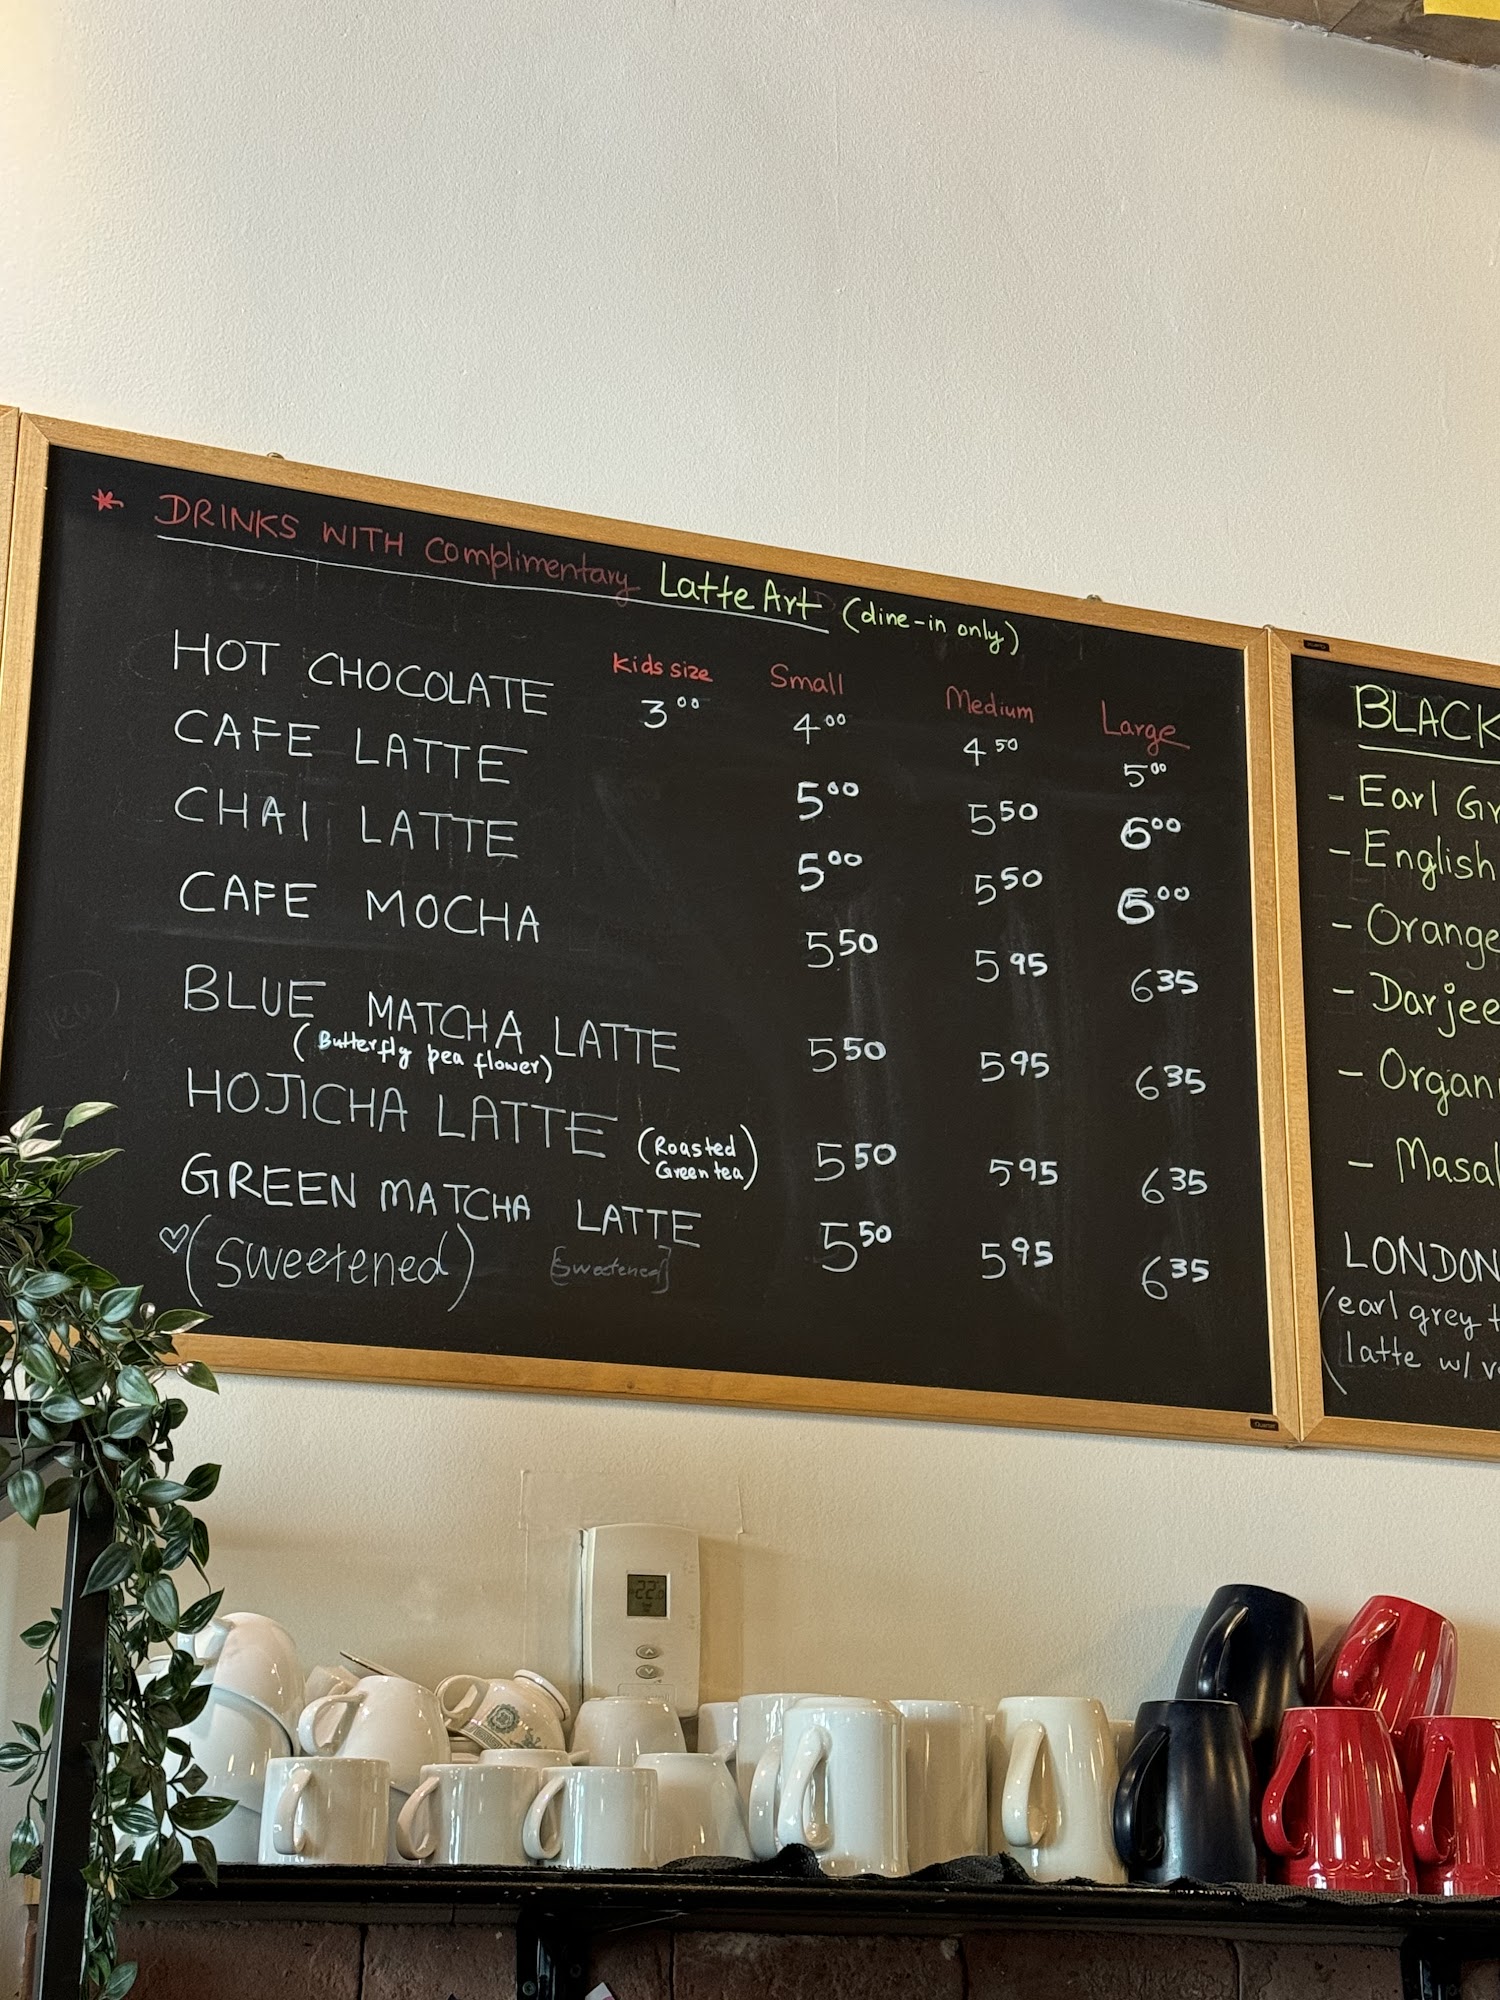 * DRINKS WITH Complimentary Latte Art (dine-in only)
Kids size Small Medium Large
HOT CHOCOLATE 3 00 4 00 4 50 5 00
CAFE LATTE 5 00 5 50 6 00
CHAI LATTE 5 00 5 50 6 00
CAFE MOCHA 5 50 5 95 6 35
BLUE MATCHA LATTE 5 50 5 95 6 35
(Butterfly pea flower)
HOJICHA LATTE (Roasted Green tea) 5 50 5 95 6 35
GREEN MATCHA LATTE 5 50 5 95 6 35
♡(Sweetened) [Sweetened]
BLACK
- Earl Gr
- English
- Orange
- Darjee
- Organi
- Masal
LONDON
(earl grey t
latte w/ v
22